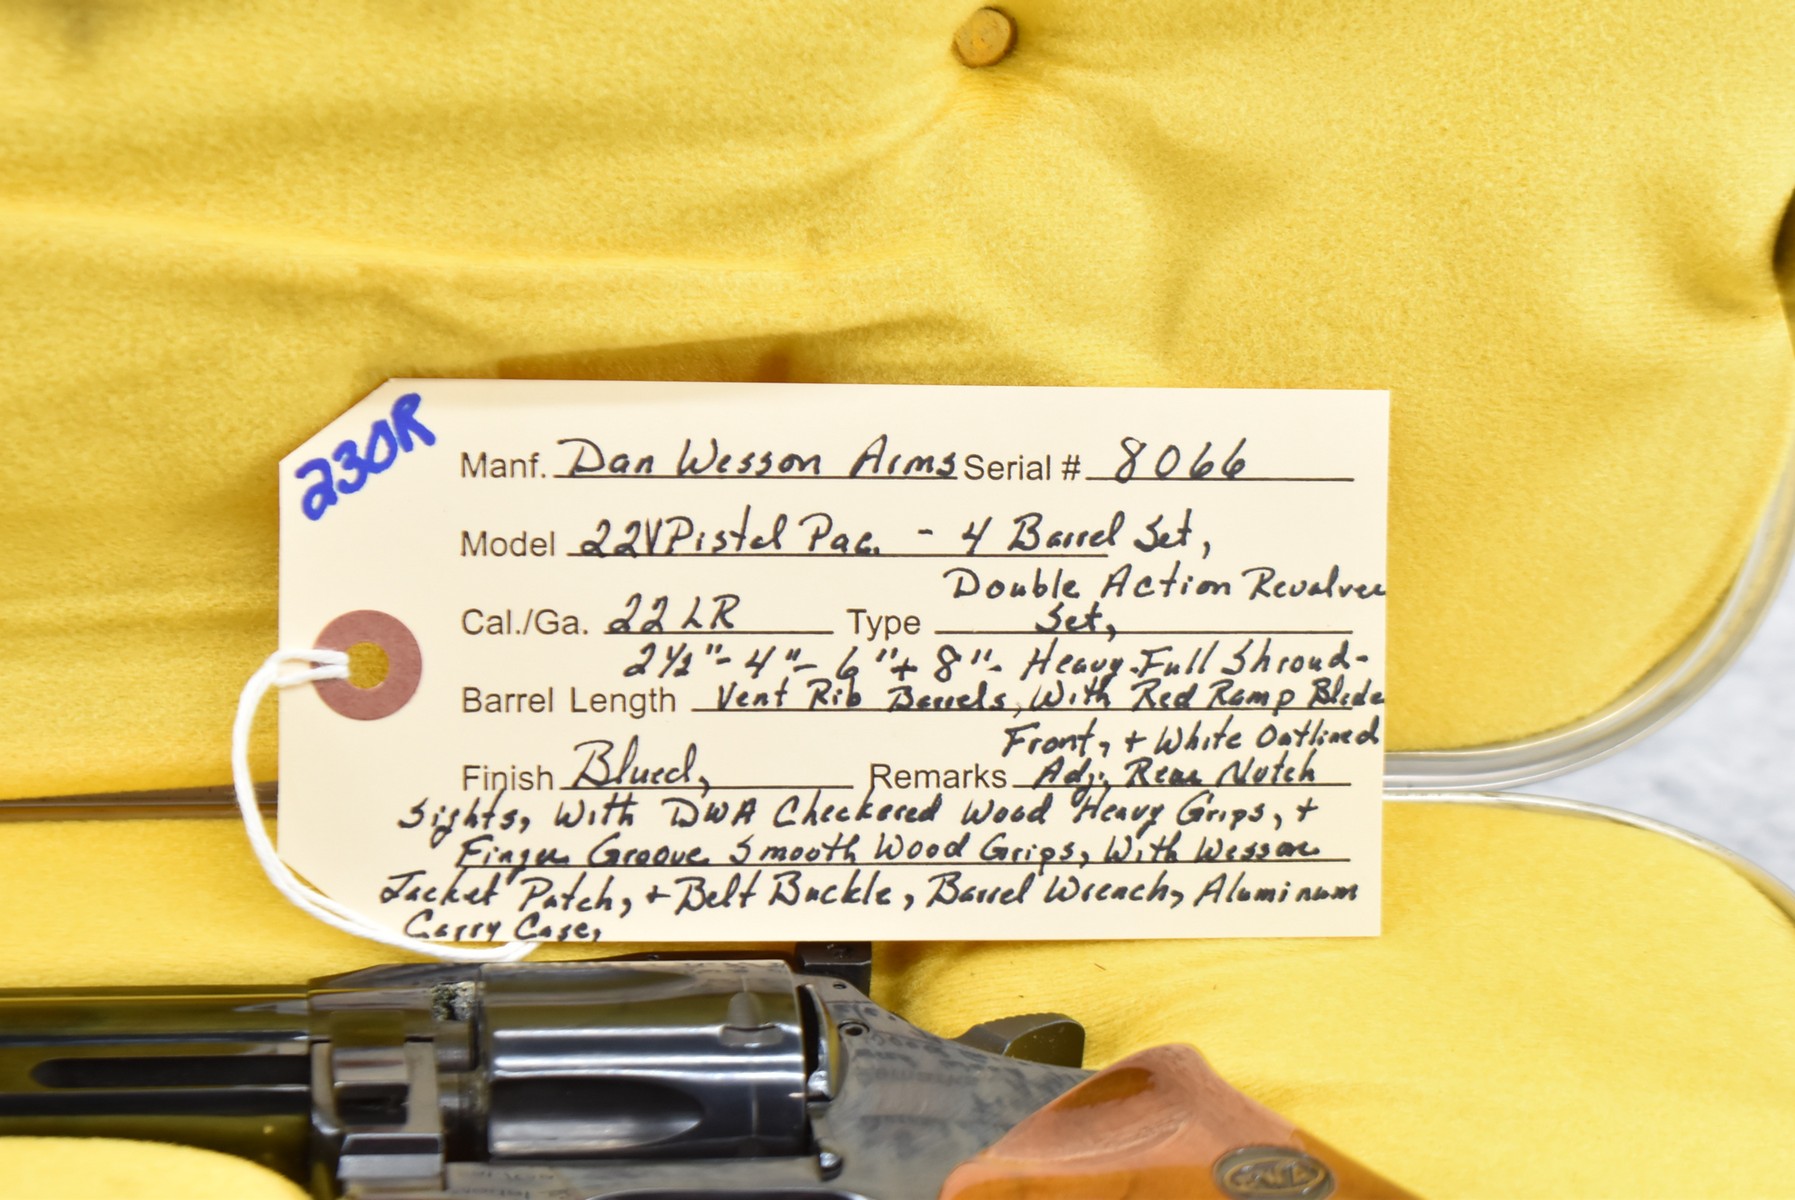 230R
Manf. Dan Wesson Arms Serial # 8066
Model 22VPistol Pac. - 4 Barrel Set,
Double Action Revolver
Cal./Ga. 22LR Type Set,
2½"- 4"- 6"+ 8"- Heavy-Full Shroud-
Barrel Length Vent Rib Barrels, With Red Ramp Blade
Front, + White Outlined
Finish Blued, Remarks Adj. Rear Notch
Sights, With DWA Checkered Wood Heavy Grips, +
Finger Groove Smooth Wood Grips, With Wesson
Jacket Patch, + Belt Buckle, Barrel Wrench, Aluminum
Carry Case,